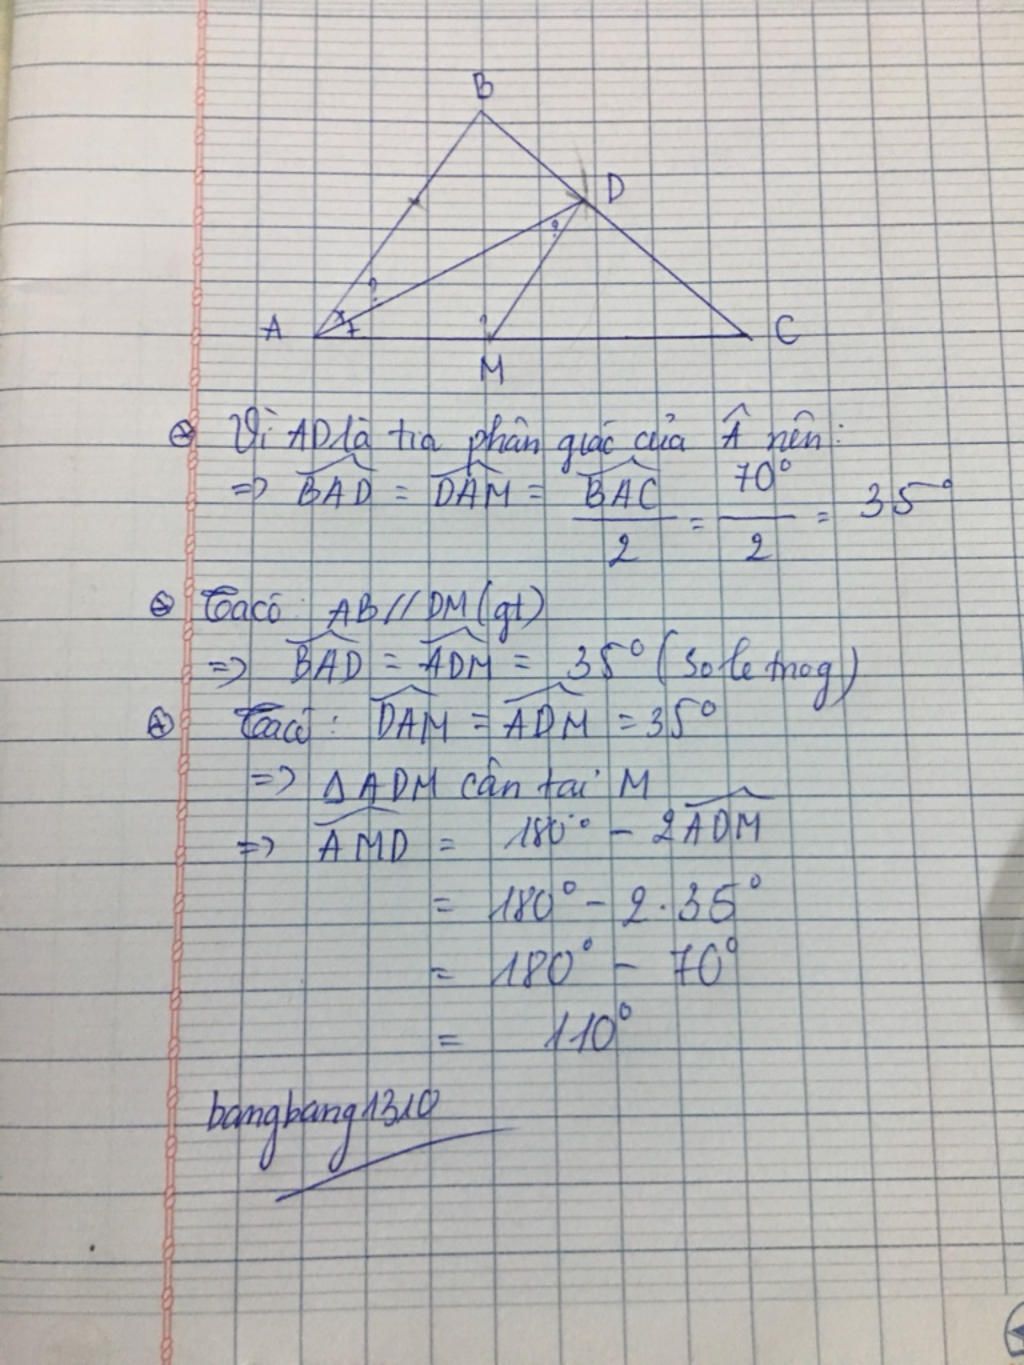 B
D
?
?
A
?
C
M
Vì AD là tia phân giác của Â nên:
=> BAD = DAM = BAC/2 = 70°/2 = 35°
Ta có: AB // DM (gt)
=> BAD = ADM = 35° (so le trog)
Ta có: DAM = ADM = 35°
=> Δ ADM cân tai M
=> AMD = 180° - 2ADM
= 180° - 2.35°
= 180° - 70°
= 110°
bangbang1310